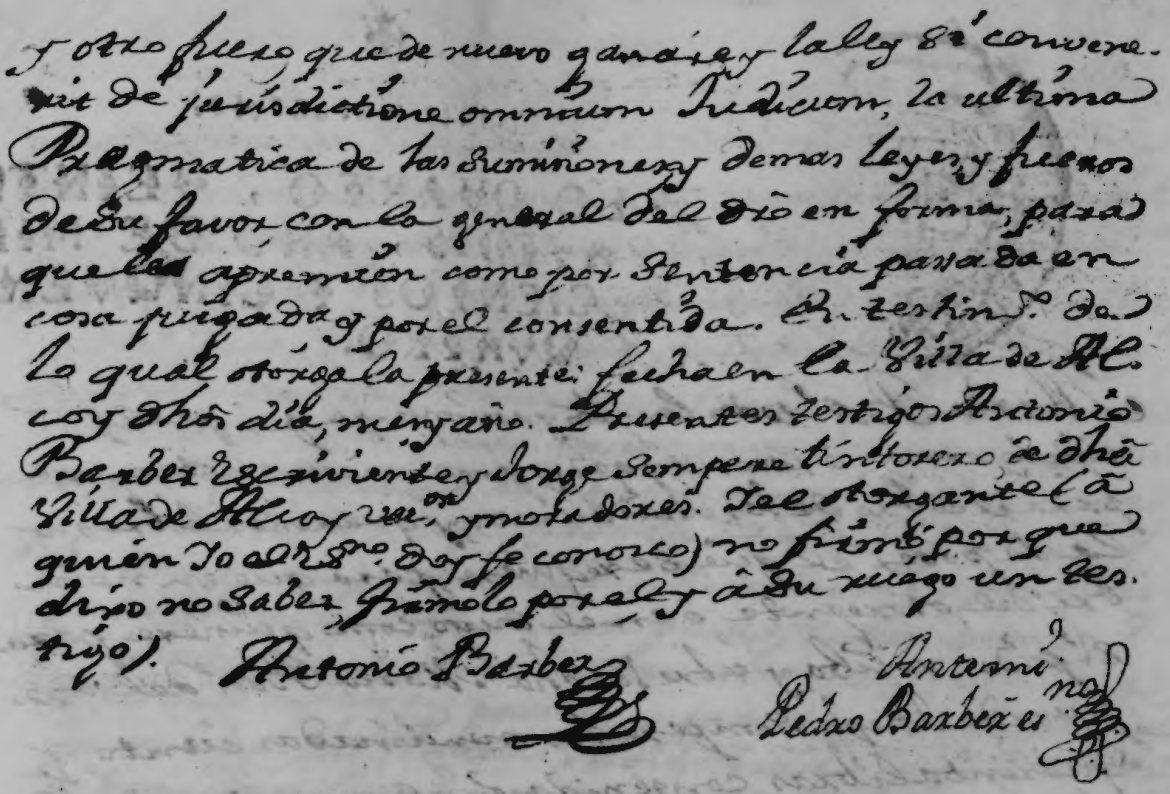 y otro fuero que de nuevo ganare y la ley Si convene-
rit de jurisdictione omnium Judicum, la ultima
Pragmatica de las sumiciones y demas leyes y fueros
de su favor con la general del dro en forma, para
que le apremien como por sentencia pasada en
cosa jusgada y por el consentida. En testim.o de
lo qual otorga la presente: fecha en la Villa de Al-
coy dhos dia, mes y año. Presentes testigos Antonio
Barber Escriviente y Jorge Sempere tintorero de dha
Villa de Alcoy vez.os y moradores. Y el otorgante (â
quien Yo el Es.no doy fe conosco) no firmó por que
dixo no saber, firmolo por el y â su ruego un tes-
tigo).
Antonio Barber
Antemi
Pedro Barber es.no